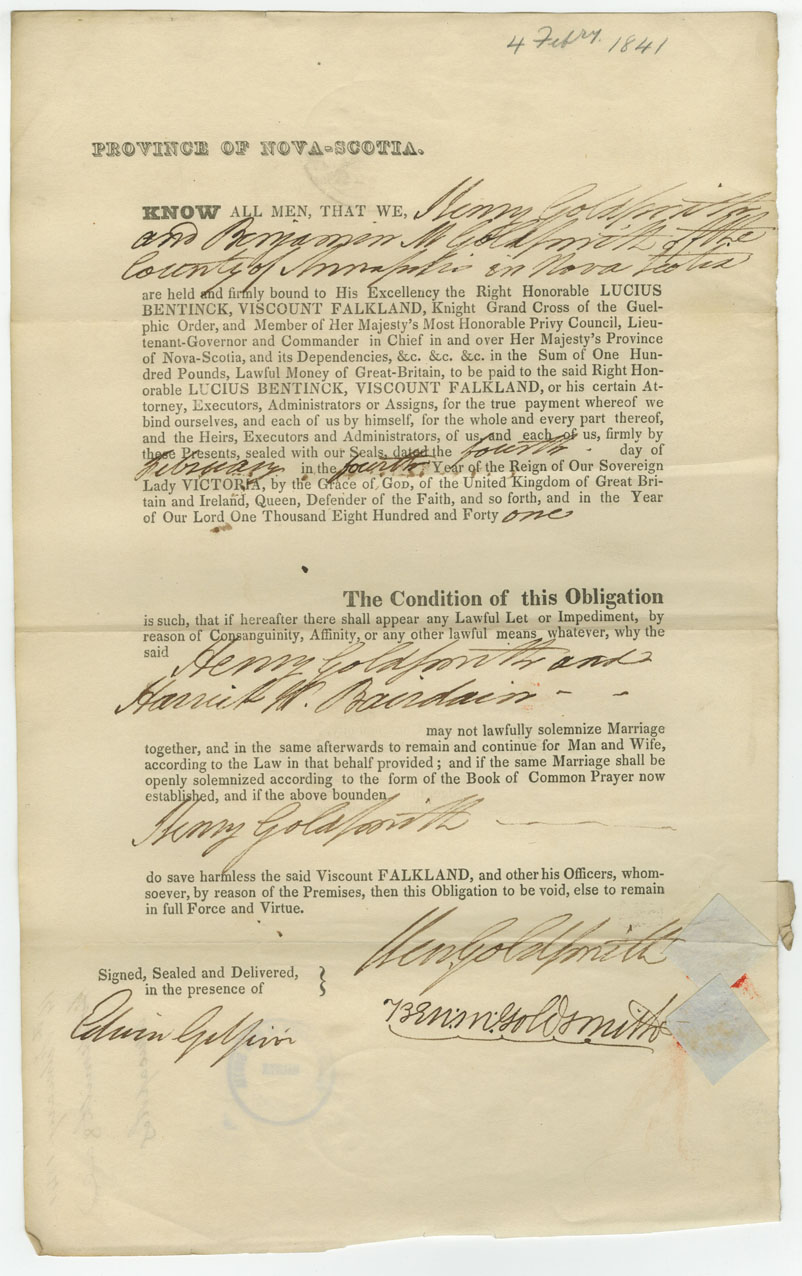 4 Febry. 1841
PROVINCE OF NOVA-SCOTIA.
KNOW ALL MEN, THAT WE, Henry Goldsmith
and Benjamin M Goldsmith of the
County of Annapolis in Nova Scotia
are held and firmly bound to His Excellency the Right Honorable LUCIUS
BENTINCK, VISCOUNT FALKLAND, Knight Grand Cross of the Guel-
phic Order, and Member of Her Majesty's Most Honorable Privy Council, Lieu-
tenant-Governor and Commander in Chief in and over Her Majesty's Province
of Nova-Scotia, and its Dependencies, &c. &c. &c. in the Sum of One Hun-
dred Pounds, Lawful Money of Great-Britain, to be paid to the said Right Hon-
orable LUCIUS BENTINCK, VISCOUNT FALKLAND, or his certain At-
torney, Executors, Administrators or Assigns, for the true payment whereof we
bind ourselves, and each of us by himself, for the whole and every part thereof,
and the Heirs, Executors and Administrators, of us and each of us, firmly by
these Presents, sealed with our Seals, dated the fourth day of
February in the fourth Year of the Reign of Our Sovereign
Lady VICTORIA, by the Grace of GOD, of the United Kingdom of Great Bri-
tain and Ireland, Queen, Defender of the Faith, and so forth, and in the Year
of Our Lord One Thousand Eight Hundred and Forty one
The Condition of this Obligation
is such, that if hereafter there shall appear any Lawful Let or Impediment, by
reason of Consanguinity, Affinity, or any other lawful means whatever, why the
said Henry Goldsmith and
Harriet W. Bairdain - -
may not lawfully solemnize Marriage
together, and in the same afterwards to remain and continue for Man and Wife,
according to the Law in that behalf provided; and if the same Marriage shall be
openly solemnized according to the form of the Book of Common Prayer now
established, and if the above bounden
Henry Goldsmith
do save harmless the said Viscount FALKLAND, and other his Officers, whom-
soever, by reason of the Premises, then this Obligation to be void, else to remain
in full Force and Virtue.
Hen. Goldsmith
Signed, Sealed and Delivered,
in the presence of
Benj. M. Goldsmith
Edwin Gilpin